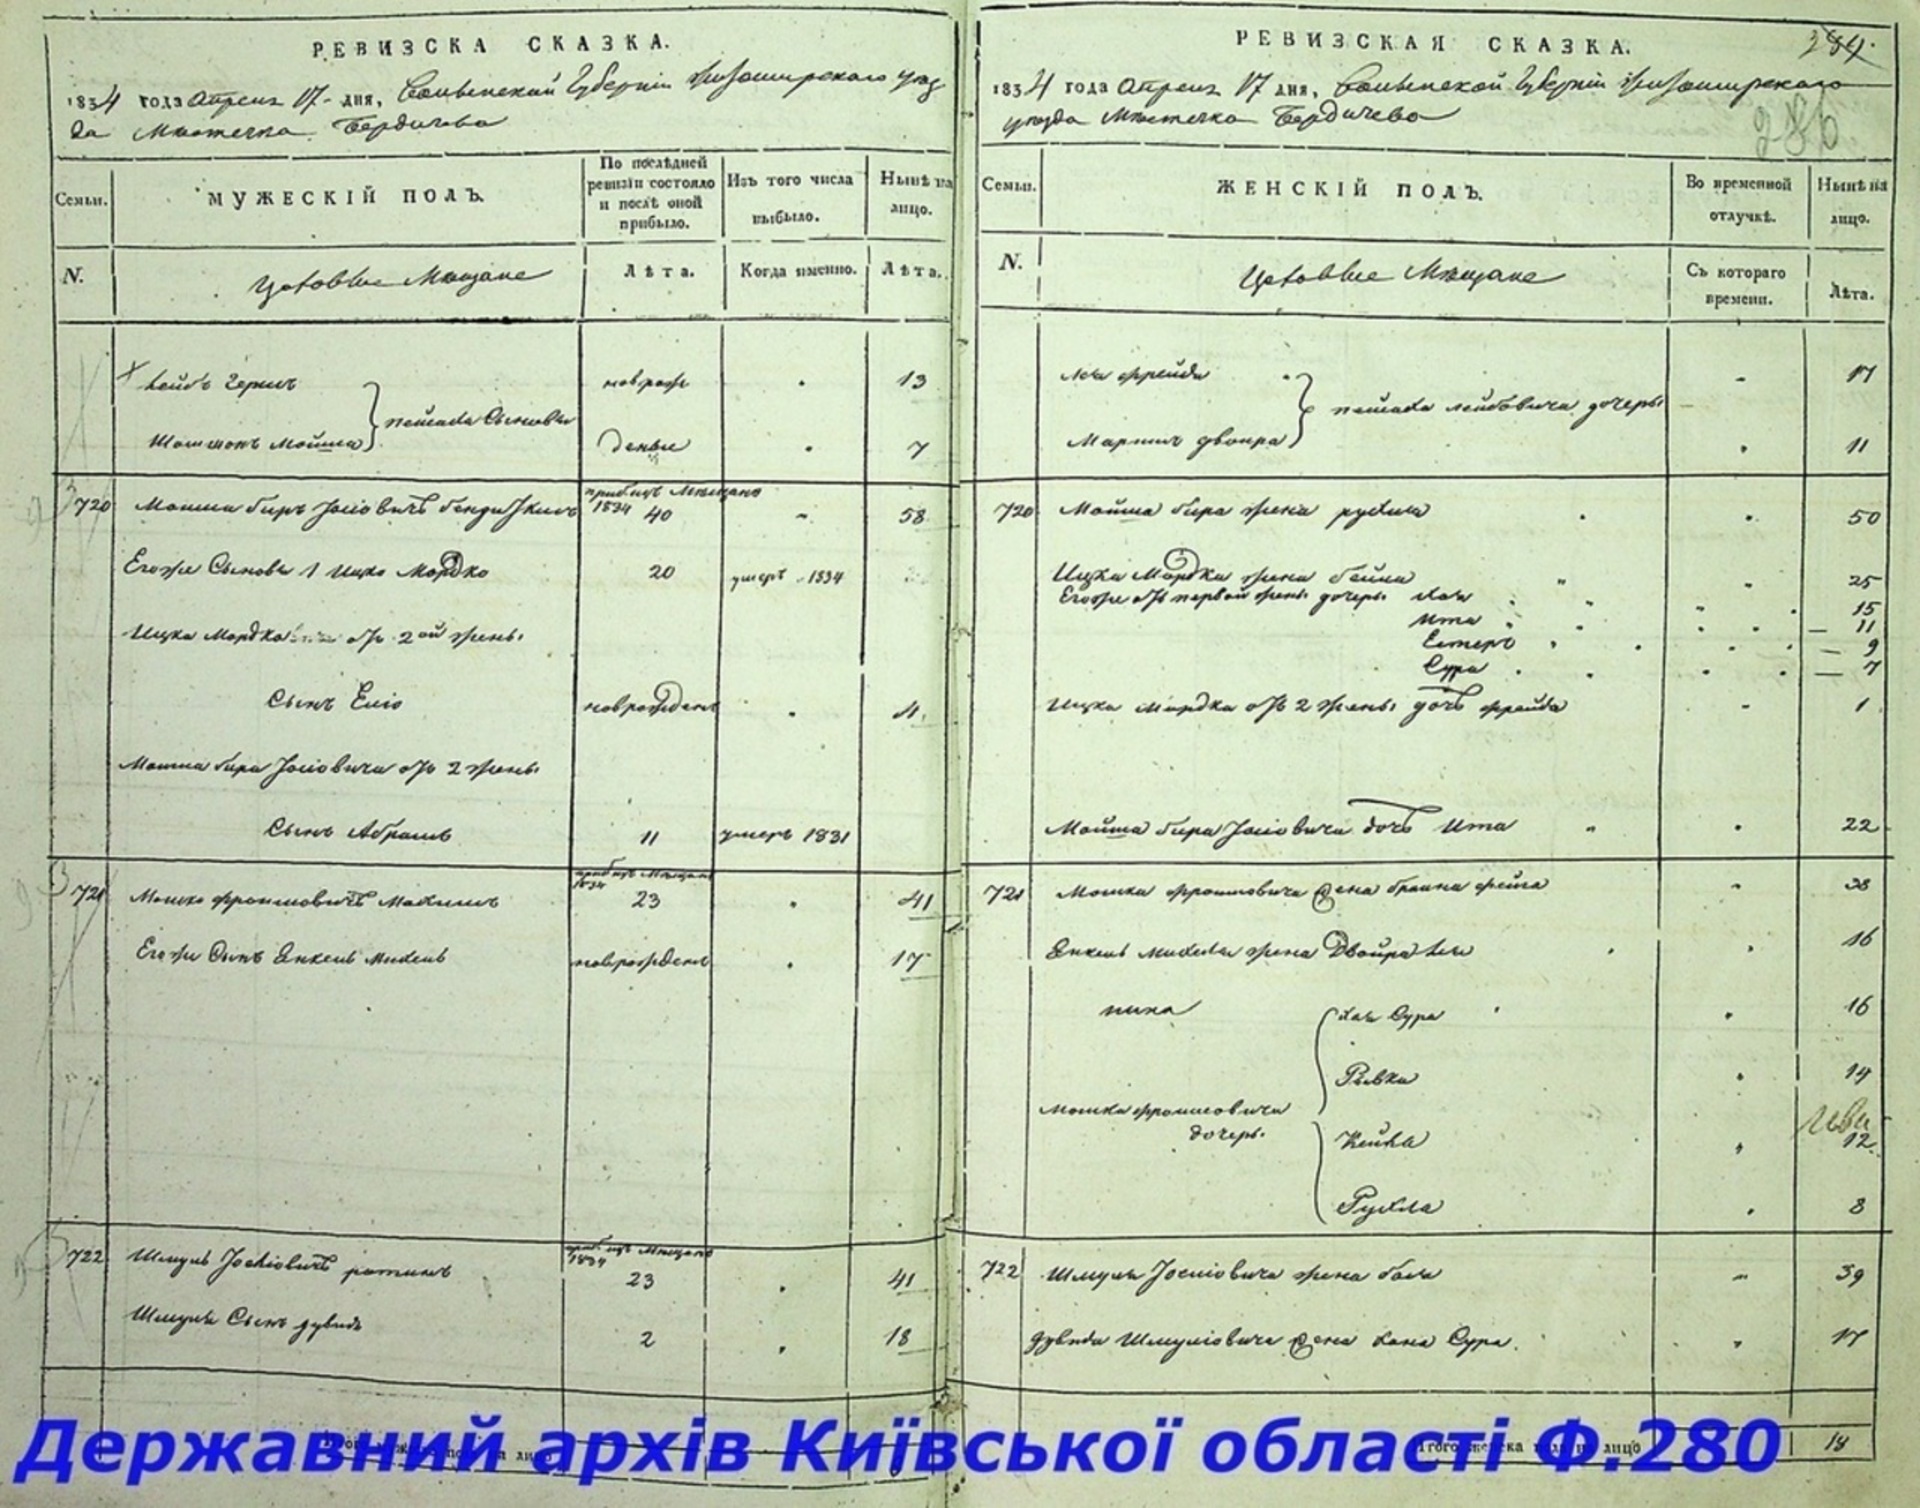 РЕВИЗСКА СКАЗКА.
1834 года Апреля 17 дня, Волынской Губерніи Житомирского уез
да Местечка Бердичева
Семьи.
МУЖЕСКІЙ ПОЛЪ.
По послѣдней ревизіи состояло и послѣ оной прибыло.
Изъ того числа выбыло.
Нынѣ на лицо.
N.
Цеховые Мещане
Лѣта.
Когда именно.
Лѣта.
Лейбъ Гершъ новрож 13
Пейсаха Сыновья
Шлиомъ Мойша деные 7
720 Мошка Биръ Іосіовичъ 40 58
прибыл Мещано 1834
Егоже Сыновья 1 Ицко Мордко 20 умеръ 1834
Ицка Мордка отъ 2ой жены
Сынъ Еліо новрожденъ 4
Мошка Бира Іосіовича отъ 2 жены
Сынъ Абрамъ 11 умеръ 1831
721 Мошко Фроимовичъ 23 41
Егоже Сынъ Янкель Михель новрожденъ 17
722 Шмуль Іосіовичъ 23 41
Шмуля Сынъ Дувидъ 2 18
РЕВИЗСКАЯ СКАЗКА.
1834 года Апреля 17 дня, Волынской Губерніи Житомирского
уезда Местечка Бердичева
286
Семьи.
ЖЕНСКІЙ ПОЛЪ.
Во временной отлучкѣ.
Нынѣ на лицо.
N.
Цеховые Мещане
Съ котораго времени.
Лѣта.
Лея Фрейда 17
Пейсаха Лейбовича дочеры
Двойра 11
720 Мойша Бира жена Рухля 50
Ицка Мордка жена Бейла 25
Егоже отъ первой жены дочеры Хая 15
Ита 11
Естеръ 9
Сура 7
Ицка Мордка отъ 2 жены дочъ Фрейда 1
Мойша Бира Іосіовича дочъ Ита 22
721 Мошка Фроимовича жена Браина Фейга 38
Янкель Михеля жена Двойра Лея 16
Хая Сура 16
Ривка 14
Мошка Фроимовича
дочеры
Кейла 12
Рухля 8
722 Шмуля Іосіовича жена Бася 39
Дувида Шмуліовича жена Хана Сура 17
Итого женска полу на лицо 18
Державний архів Київської області Ф.280